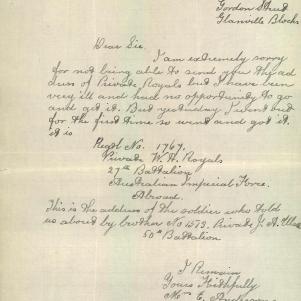 Gordon Street
Glanville Blocks
Dear Sir.
I am extremely sorry
for not being able to send you the ad
dress of Private Royals but I have been
very ill and had no opportunity to go
and get it. But yesterday I went out
for the first time so went and got it.
it is
Regtl No. 1767.
Private W. H. Royals
27th Battalion
Australian Imperial Force.
Abroad.
This is the address of the soldier who told
us about my brother No 1573. Private J. A.
50th Battalion
I Remain
Yours Faithfully